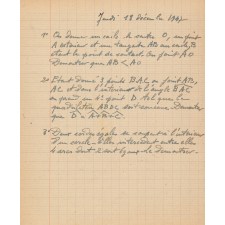 Jeudi 18 Décembre 1947
1° On donne un cercle de centre O, un point
A extérieur et une tangente AB au cercle, B
étant le point de contact. On joint AO
Démontrer que AB < AO
2° Etant donné 3 points B A C, on joint AB,
AC et dans l'intérieur de l'angle BAC
on prend un 4e point D tel que le
quadrilatère ABDC soit convexe. Démontrer
que D = A + B + C
3° Deux cordes égales se coupent à l'intérieur
d'un cercle. Elles interceptent entre elles
4 arcs dont 2 sont égaux. Le démontrer.